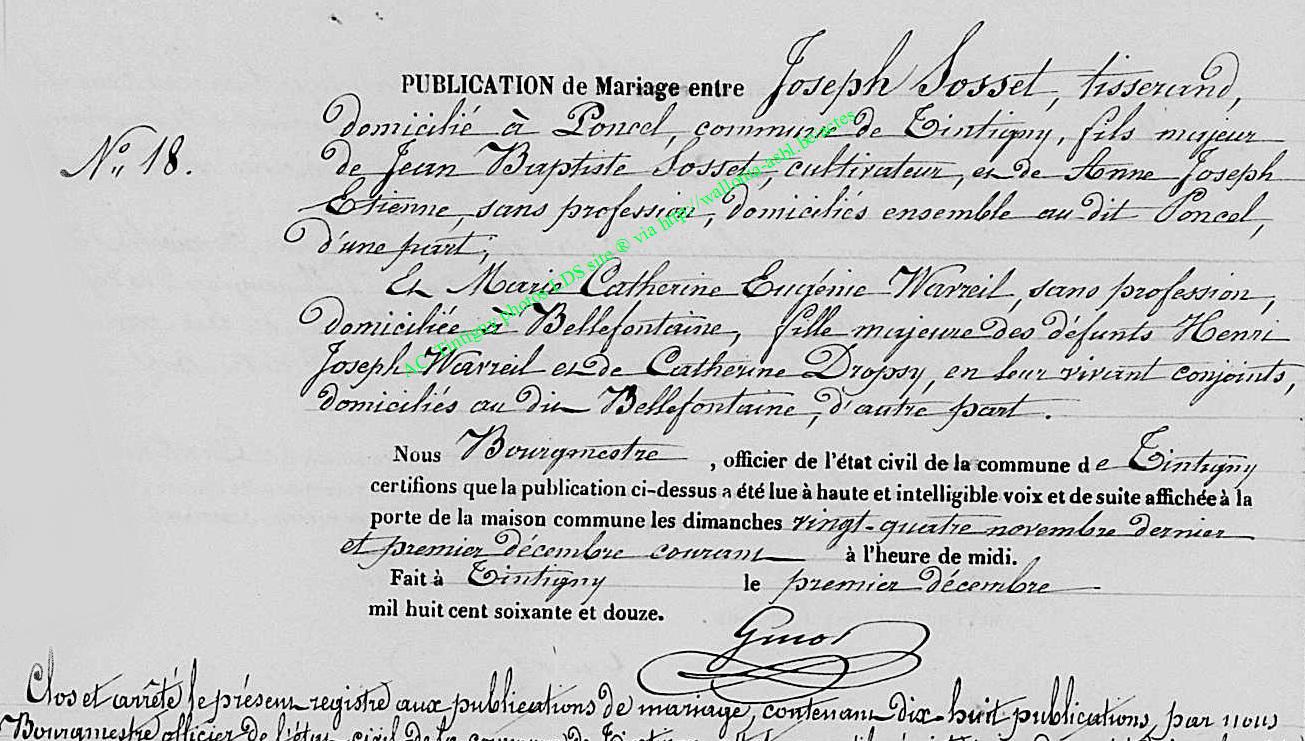 PUBLICATION de Mariage entre Joseph Sosset, tisserand,
N° 18.
domicilié à Poncel, commune de Tintigny, fils majeur
de Jean Baptiste Sosset, cultivateur, et de Anne Joseph
Etienne, sans profession, domiciliés ensemble au dit Poncel,
d'une part;
Et Marie Catherine Eugénie Warzeil, sans profession,
domiciliée à Bellefontaine, fille majeure des défunts Henri
Joseph Warzeil et de Catherine Dropsy, en leur vivant conjoints,
domiciliés au dit Bellefontaine, d'autre part.
Nous Bourgmestre, officier de l'état civil de la commune de Tintigny
certifions que la publication ci-dessus a été lue à haute et intelligible voix et de suite affichée à la
porte de la maison commune les dimanches vingt-quatre novembre dernier
et premier décembre courant à l'heure de midi.
Fait à Tintigny le premier décembre
mil huit cent soixante et douze.
Clos et arrêté le présent registre aux publications de mariage, contenant dix-huit publications, par nous
Bourgmestre officier de l'état civil de la commune de
AC Tintigny photos LDS site ® via http://wallonia-asbl.be/actes